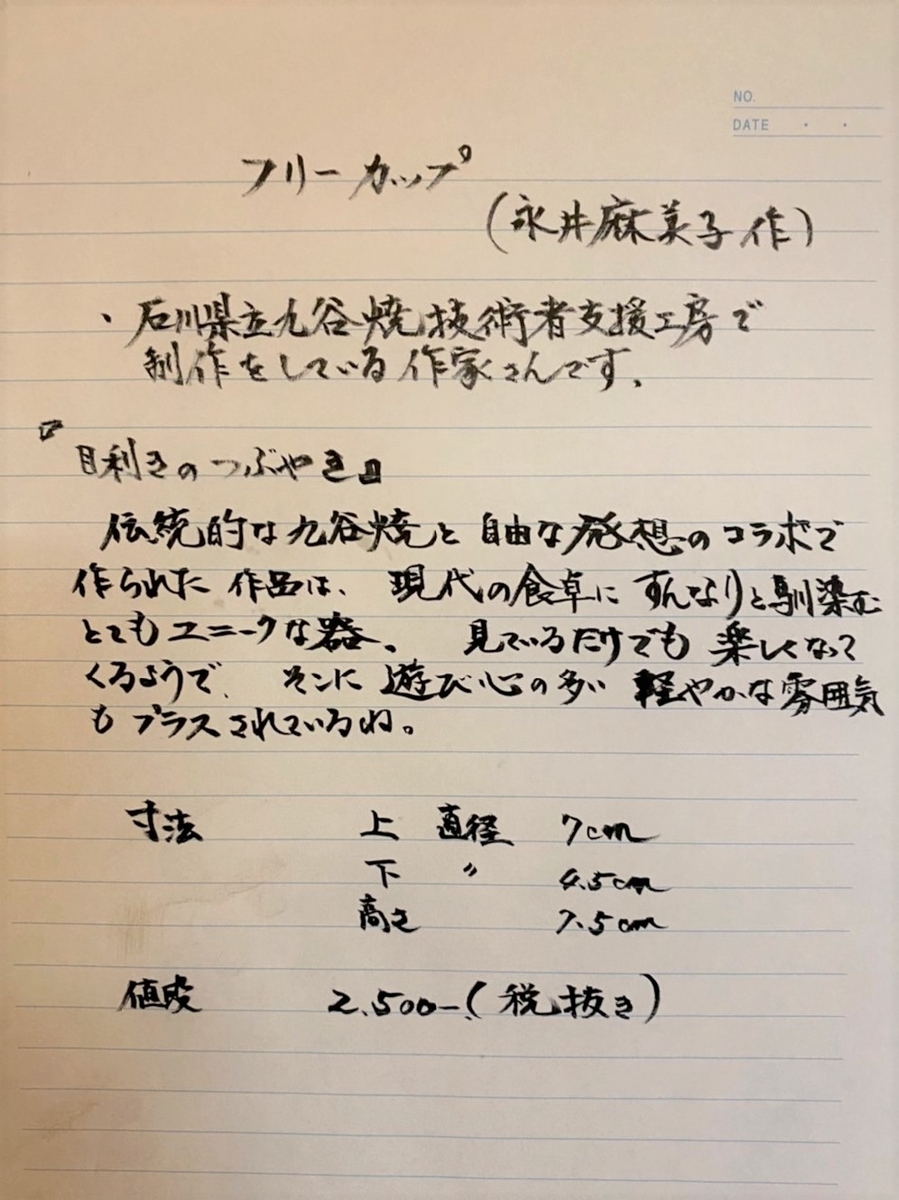 NO.
DATE ・ ・
フリーカップ
(永井麻美子作)
・石川県立九谷焼技術者支援工房で
制作をしている作家さんです、
『目利きのつぶやき』
伝統的な九谷焼と自由な発想のコラボで
作られた作品は、現代の食卓にすんなりと馴染む
とてもユニークな器。見ているだけでも楽しくなって
くるようで、そこに遊び心の多い軽やかな雰囲気
もプラスされているね。
寸法 上 直径 7cm
下 〃 4.5cm
高さ 7.5cm
値段 2,500-(税抜き)